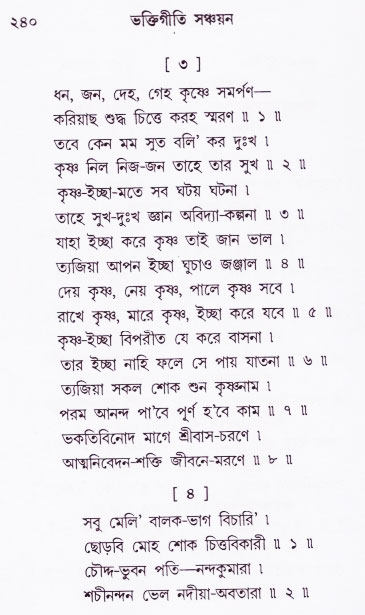 ২৪০ ভক্তিগীতি সঞ্চয়ন
[ ৩ ]
ধন, জন, দেহ, গেহ কৃষ্ণে সমর্পণ—
করিয়াছ শুদ্ধ চিত্তে করহ স্মরণ ॥ ১ ॥
তবে কেন মম সুত বলি' কর দুঃখ ।
কৃষ্ণ নিল নিজ-জন তাহে তার সুখ ॥ ২ ॥
কৃষ্ণ-ইচ্ছা-মতে সব ঘটয় ঘটনা ।
তাহে সুখ-দুঃখ জ্ঞান অবিদ্যা-কল্পনা ॥ ৩ ॥
যাহা ইচ্ছা করে কৃষ্ণ তাই জান ভাল ।
ত্যজিয়া আপন ইচ্ছা ঘুচাও জঞ্জাল ॥ ৪ ॥
দেয় কৃষ্ণ, নেয় কৃষ্ণ, পালে কৃষ্ণ সবে ।
রাখে কৃষ্ণ, মারে কৃষ্ণ, ইচ্ছা করে যবে ॥ ৫ ॥
কৃষ্ণ-ইচ্ছা বিপরীত যে করে বাসনা ।
তার ইচ্ছা নাহি ফলে সে পায় যাতনা ॥ ৬ ॥
ত্যজিয়া সকল শোক শুন কৃষ্ণনাম ।
পরম আনন্দ পা'বে পূর্ণ হ'বে কাম ॥ ৭ ॥
ভকতিবিনোদ মাগে শ্রীবাস-চরণে ।
আত্মনিবেদন-শক্তি জীবনে-মরণে ॥ ৮ ॥
[ ৪ ]
সবু মেলি' বালক-ভাগ বিচারি' ।
ছোড়বি মোহ শোক চিত্তবিকারী ॥ ১ ॥
চৌদ্দ-ভুবন পতি—নন্দকুমারা ।
শচীনন্দন ভেল নদীয়া-অবতারা ॥ ২ ॥